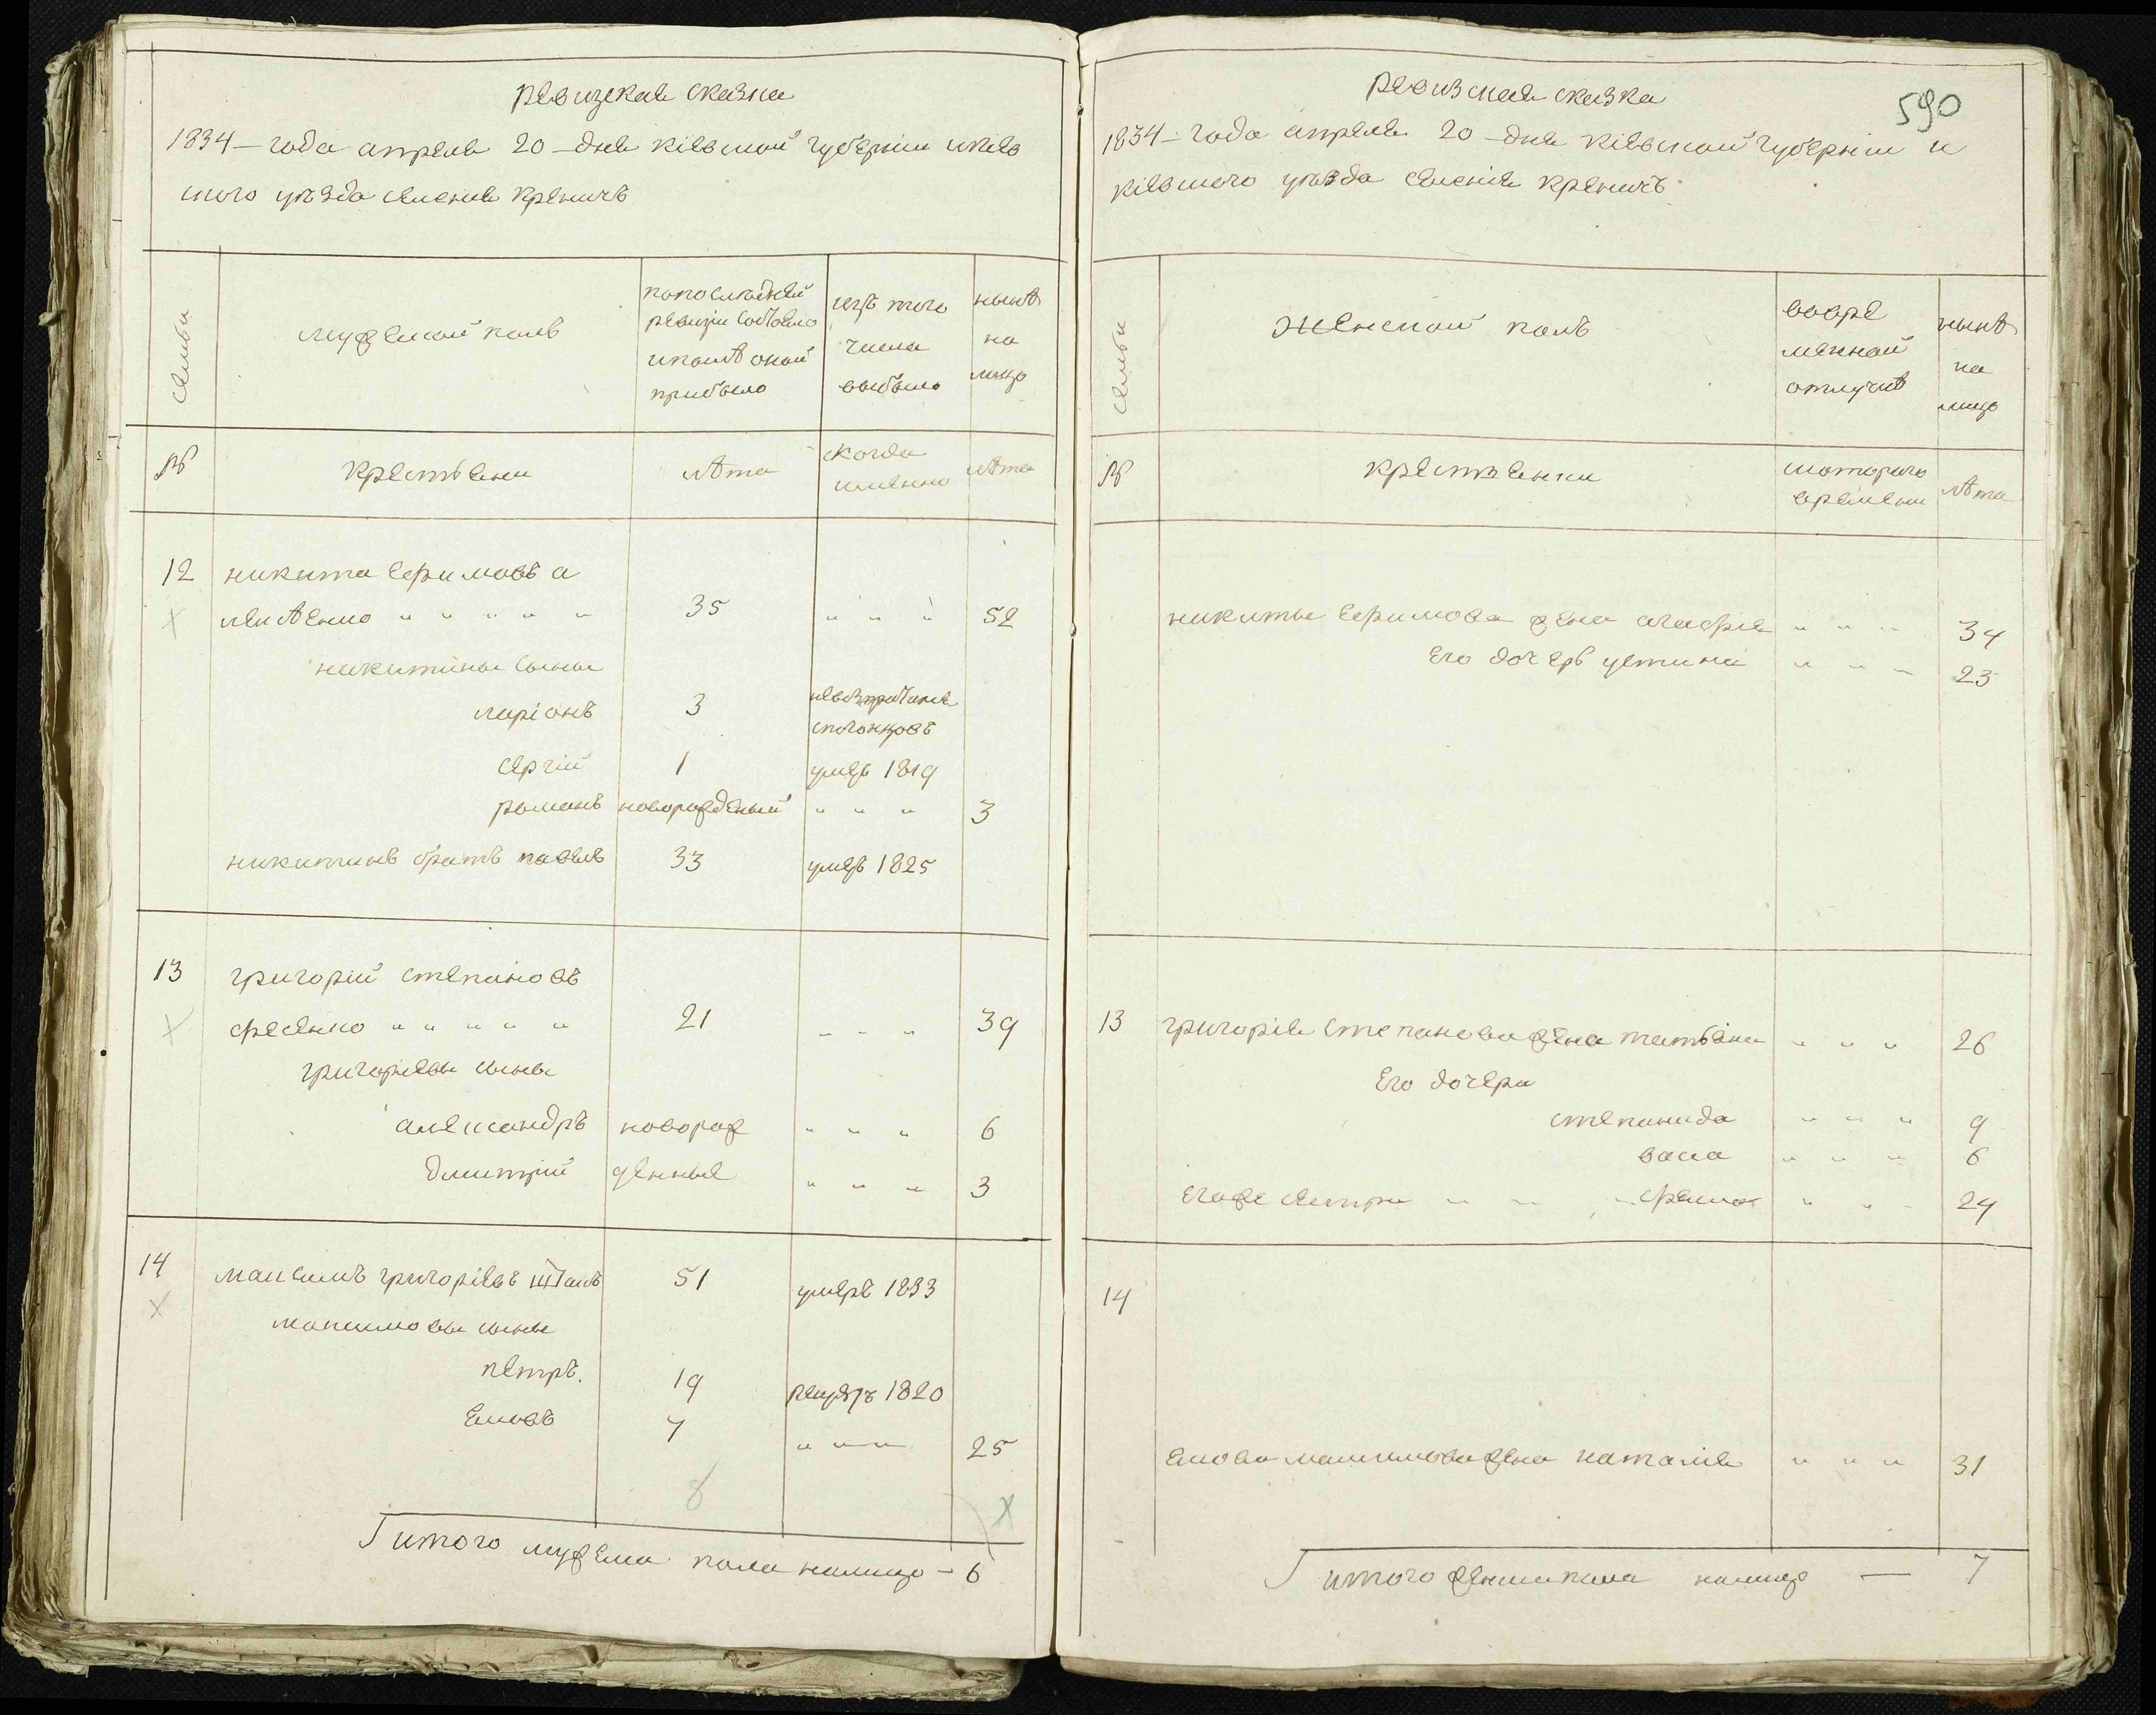 ревизская сказка
1834 – года апреля 20 – дня кіевской губерніи икіев
ского уѣзда селенія креничъ
семьи
мужеской полъ
попоследней
ревизіи состояло
ипослѣ оной
прибыло
изъ того
числа
выбыло
нынѣ
на
лицо
№
крестьяни
лѣта
когда
именно
лѣта
12
никита ефимовъ а
35
52
никитины сыны
ларіонъ 3
сергій 1 умеръ 1819
романъ новорожденый 3
никитинъ братъ павелъ 33 умеръ 1825
13
григорій степановъ
фесенко 21 39
григоріевы сыны
александръ новорож 6
дмитрій денные 3
14
максимъ григоріевъ 51 умеръ 1833
максимовы сыны
петръ. 19 рекрутъ 1820
яковъ 7 25
8
итого мужеска пола налицо – 6
590
ревизская сказка
1834 – года апреля 20 – дня кіевской губерніи и
кіевского уѣзда селенія креничъ
семьи
женской полъ
вовре
менной
отлучкѣ
нынѣ
на
лицо
№
крестьянки
скоторого
времени
лѣта
никиты ефимова жена агафія 34
его дочерь устина 23
13
григорія степанова жена татьяна 26
его дочери
степанида 9
васса 6
егоже сестра 24
14
якова максимова жена наталія 31
итого женска пола налицо — 7